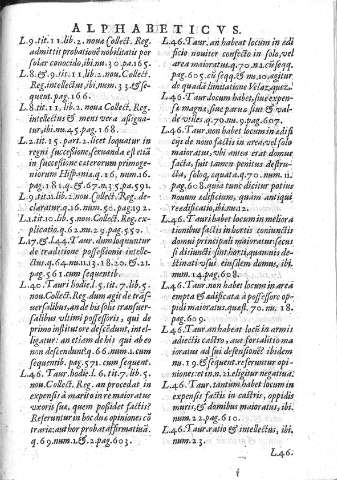 ALPHABETICVS.
L.9.tit.11.lib.2. noua Collect. Reg.
admittis probatione nobilitatis por
solar conocido, ibi, nu.30.pa.165.
L.8.&.9.tit.11.lib.2. nou. Collect.
Reg. intellectus, ibi, num.33.& se-
quent. pag.166.
L.8.tit.11.lib.2. noua Collect. Reg.
intellectus & mens vera assigna-
tur, ibi, nu.45.pag.168.
L.2.tit.15.part.2. licet loquatur in
regni successione, seruanda est etiã
in successione caterorum primoge-
niorum Hispania. q.16. num.16.
pag.181. q.&.67.n.35.pa.591.
L.9.tit.11.lib.2. nou. Collect. Reg. de-
claratur. q.16. num.50. pag.192.
L.1.tit.10.lib.5. nou. Collect. Reg. ex-
plicatio. q.62.nu.29.pag.550.
L.17.& 44. Taur. dum loquuntur
de traditione possessionis intelle-
ctus. q.64.nu.11.13.18.20.& 21.
pag.561. cum sequentib.
L.40. Tauri hodie l.5.tit.7.lib.5.
nou. Collect. Reg. dum agit de trãs-
uersalibus, an de his solũ transuer-
salibus vltimi possessoris, qui de
primo institutore descẽdunt, intel-
ligatur: an etiam de his qui ab eo
non descendunt q.66.num.2. cum
sequentib. pag.571. cum sequent.
L.46. Taur. hodie l.6.tit.7.lib.5.
nou. Collect. Reg. an procedat in
expensis à marito in re maioratus
vxoris sue, quem possidet factis?
Referuntur in hoc dua opiniones cõ
traria: author probat affirmatiuã.
q.69.num.1.& 2. pag.603.
L.46. Taur. an habeat locum in edi
ficio nouiter confecto in solo, vel
area maioratus. q.70.n.2. cũ seqq.
pag.605. cũ seqq. & nu.10. agitur
de quadã limitatione Velazquez.
L.46. Taur. an locum habet, siue expen-
sa magna, siue parua sint & val-
de viles. q.70.nu.9.pag.607.
L.46. Taur. non habet locum in adifi
cijs de nouo factis in area, vel solo
maioratus, vbi antea erat domus
facta, sed tamen penitus destru-
cta, solòq, aquata q.70.num.11.
pag.608. quia tunc dicitur potius
nouum adificium, quam antiqui
readificatio, ibi, nu.12.
L.46. Tauri habet locum in meliora
tionibus factis in hortis coniunctis
domui principali maioratus: secus
si disiuncti sint horti, quamuis de-
stinati vsui eiusdem domus, ibi.
num.14.pag.608.
L.46. Taur. non habet locum in area
empta & adificata à possessore op-
pidi maioratus. quast.70.nu.18.
pag.609.
L.46. Taur. an habeat locũ in armis
adiectis castro, aut fortalitio ma
ioratus ad sui defensionẽ? ibidem
nu.19.& sequent. referuntur opi-
niones: et n.21. eligitur negatiua.
L.46. Taur. tantùm habet locum in
expensis factis in castris, oppidis
muris, & domibus maioratus, ibi,
num.22.pag.610.
L.46. Taur. ratio & intellectus, ibi,
num.23.
L.46.